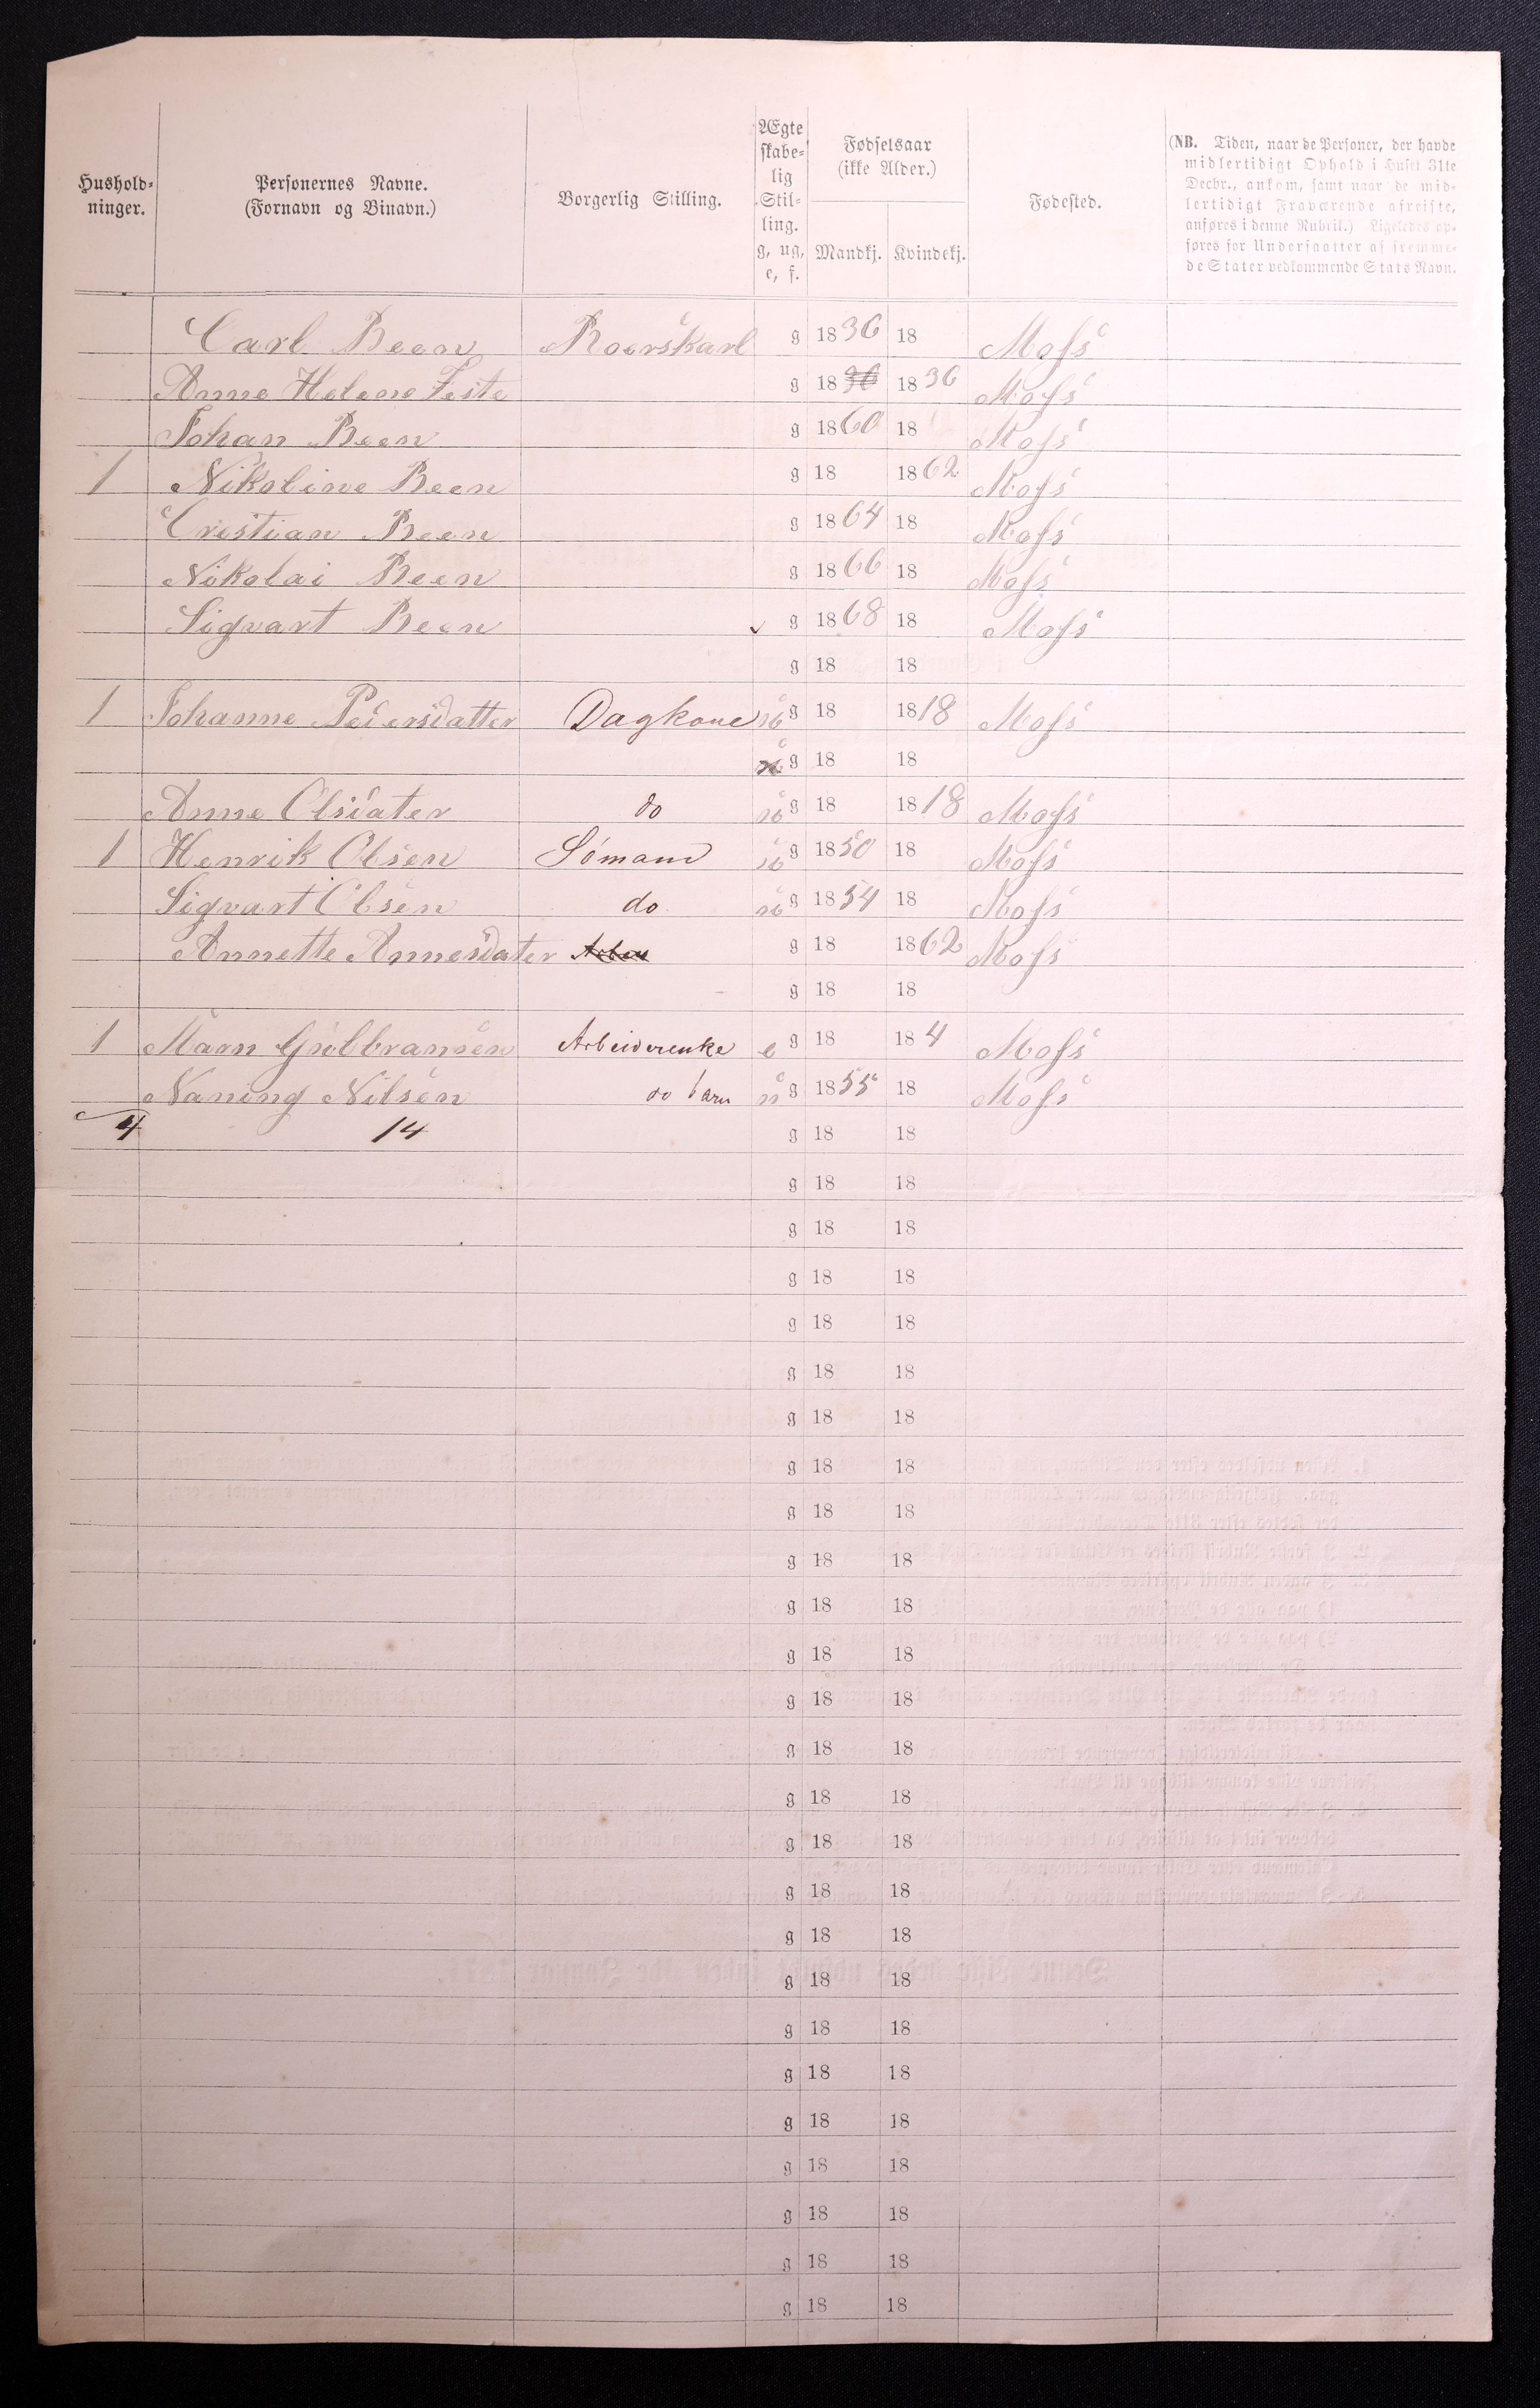 Hushold-
ninger.
Personernes Navne.
(Fornavn og Binavn.)
Borgerlig Stilling.
Ægte
skabe-
lig
Stil-
ling.
g, ug,
e, f.
Fødselsaar
(ikke Alder.)
Mandkj. Kvindekj.
Fødested.
(NB. Tiden, naar de Personer, der havde
midlertidigt Ophold i Huset 31te
Decbr., ankom, samt naar de mid-
lertidigt Fraværende afreiste,
anføres i denne Rubrik.) Ligeledes op-
føres for Undersaatter af fremme-
de Stater vedkommende Stats Navn.
Carl Been Roerskarl g 1836 18 Moss
Anne Helene Feste g 1836 1836 Moss
Johan Been g 1860 18 Moss
1 Nikoline Been g 18 1862 Moss
Cristian Been g 1864 18 Moss
Nikolai Been g 1866 18 Moss
Sigvart Been g 1868 18 Moss
g 18 18
1 Johanne Pedersdatter Dagkone ug 18 1818 Moss
g 18 18
Anne Olsdater do ug 18 1818 Moss
1 Henrik Olsen Sömand ug 1850 18 Moss
Sigvart Olsen do ug 1854 18 Moss
Annette Annesdater g 18 1862 Moss
g 18 18
1 Marn Gulbransen Arbeiderenke e g 18 184 Moss
Naning Nilsen do barn ug 1855 18 Moss
4 14 g 18 18
g 18 18
g 18 18
g 18 18
g 18 18
g 18 18
g 18 18
g 18 18
g 18 18
g 18 18
g 18 18
g 18 18
g 18 18
g 18 18
g 18 18
g 18 18
g 18 18
g 18 18
g 18 18
g 18 18
g 18 18
g 18 18
g 18 18
g 18 18
g 18 18
g 18 18